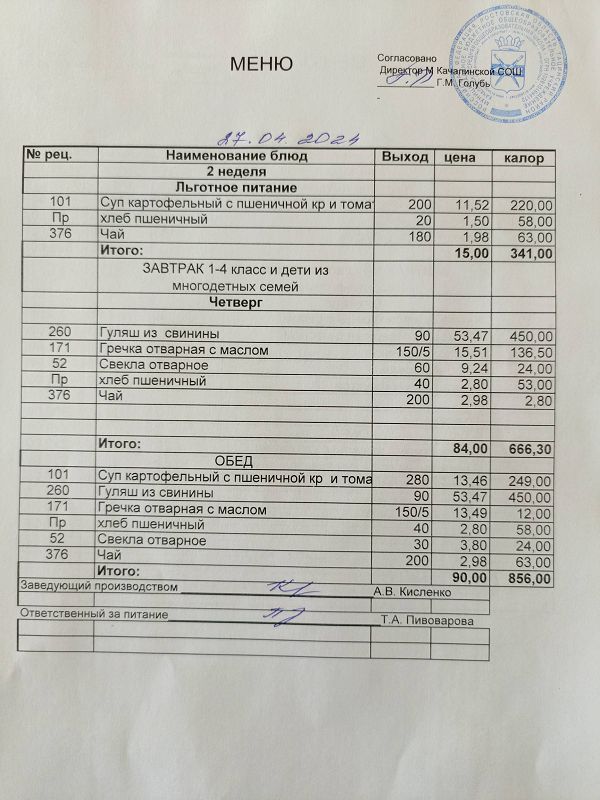 МЕНЮ
Согласовано
Директор М Качалинской СОШ
Г.М. Голубь
27.04.2024
№ рец. Наименование блюд Выход цена калор
2 неделя
Льготное питание
101 Суп картофельный с пшеничной кр и томат 200 11,52 220,00
Пр хлеб пшеничный 20 1,50 58,00
376 Чай 180 1,98 63,00
Итого: 15,00 341,00
ЗАВТРАК 1-4 класс и дети из
многодетных семей
Четверг
260 Гуляш из свинины 90 53,47 450,00
171 Гречка отварная с маслом 150/5 15,51 136,50
52 Свекла отварное 60 9,24 24,00
Пр хлеб пшеничный 40 2,80 53,00
376 Чай 200 2,98 2,80
Итого: 84,00 666,30
ОБЕД
101 Суп картофельный с пшеничной кр и тома 280 13,46 249,00
260 Гуляш из свинины 90 53,47 450,00
171 Гречка отварная с маслом 150/5 13,49 12,00
Пр хлеб пшеничный 40 2,80 58,00
52 Свекла отварное 30 3,80 24,00
376 Чай 200 2,98 63,00
Итого: 90,00 856,00
Заведующий производством А.В. Кисленко
Ответственный за питание Т.А. Пивоварова